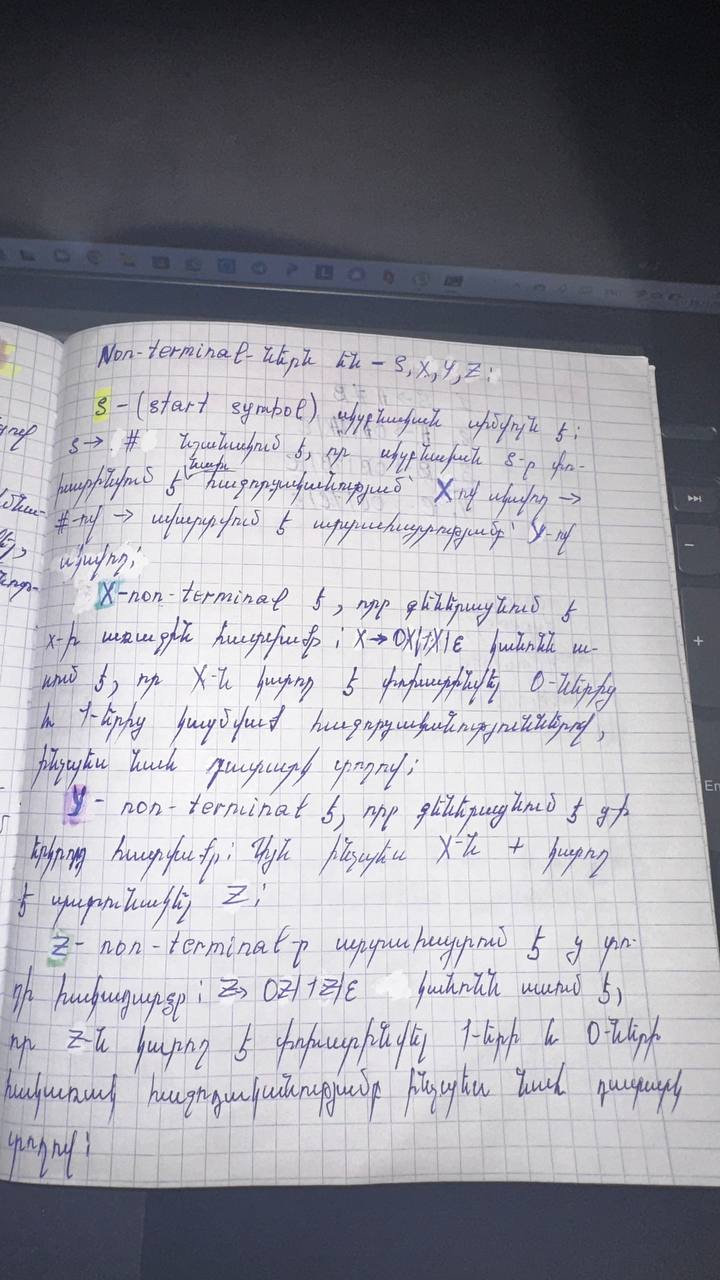 Non-terminal-ներն են – S, X, Y, Z:
S – (start symbol) սկզբնական սիմվոլն է:
S → # նշանակում է, որ սկզբնական S-ը փո-
խարինվում է նախ հաջորդականությամբ X-ով սկսվող →
#-ով → ավարտվում է արտահայտությամբ Y-ով
սկսվող:
X-non-terminal է, որը գեներացնում է
x-ի առաջին հատվածը: X→0X|1X|ε կանոնն ա-
սում է, որ X-ն կարող է փոխարինվել 0-ներից
և 1-երից կազմված հաջորդականություններով,
ինչպես նաև դատարկ տողով:
Y – non-terminal է, որը գեներացնում է y-ի
երկրորդ հատվածը: Այն ինչպես X-ն + կարող
է պարունակել Z:
Z – non-terminal-ը արտահայտում է y տո-
ղի հակադարձը: Z→ 0Z|1Z|ε կանոնն ասում է,
որ Z-ն կարող է փոխարինվել 1-երի և 0-ների
հակառակ հաջորդականությամբ ինչպես նաև դատարկ
տողով: